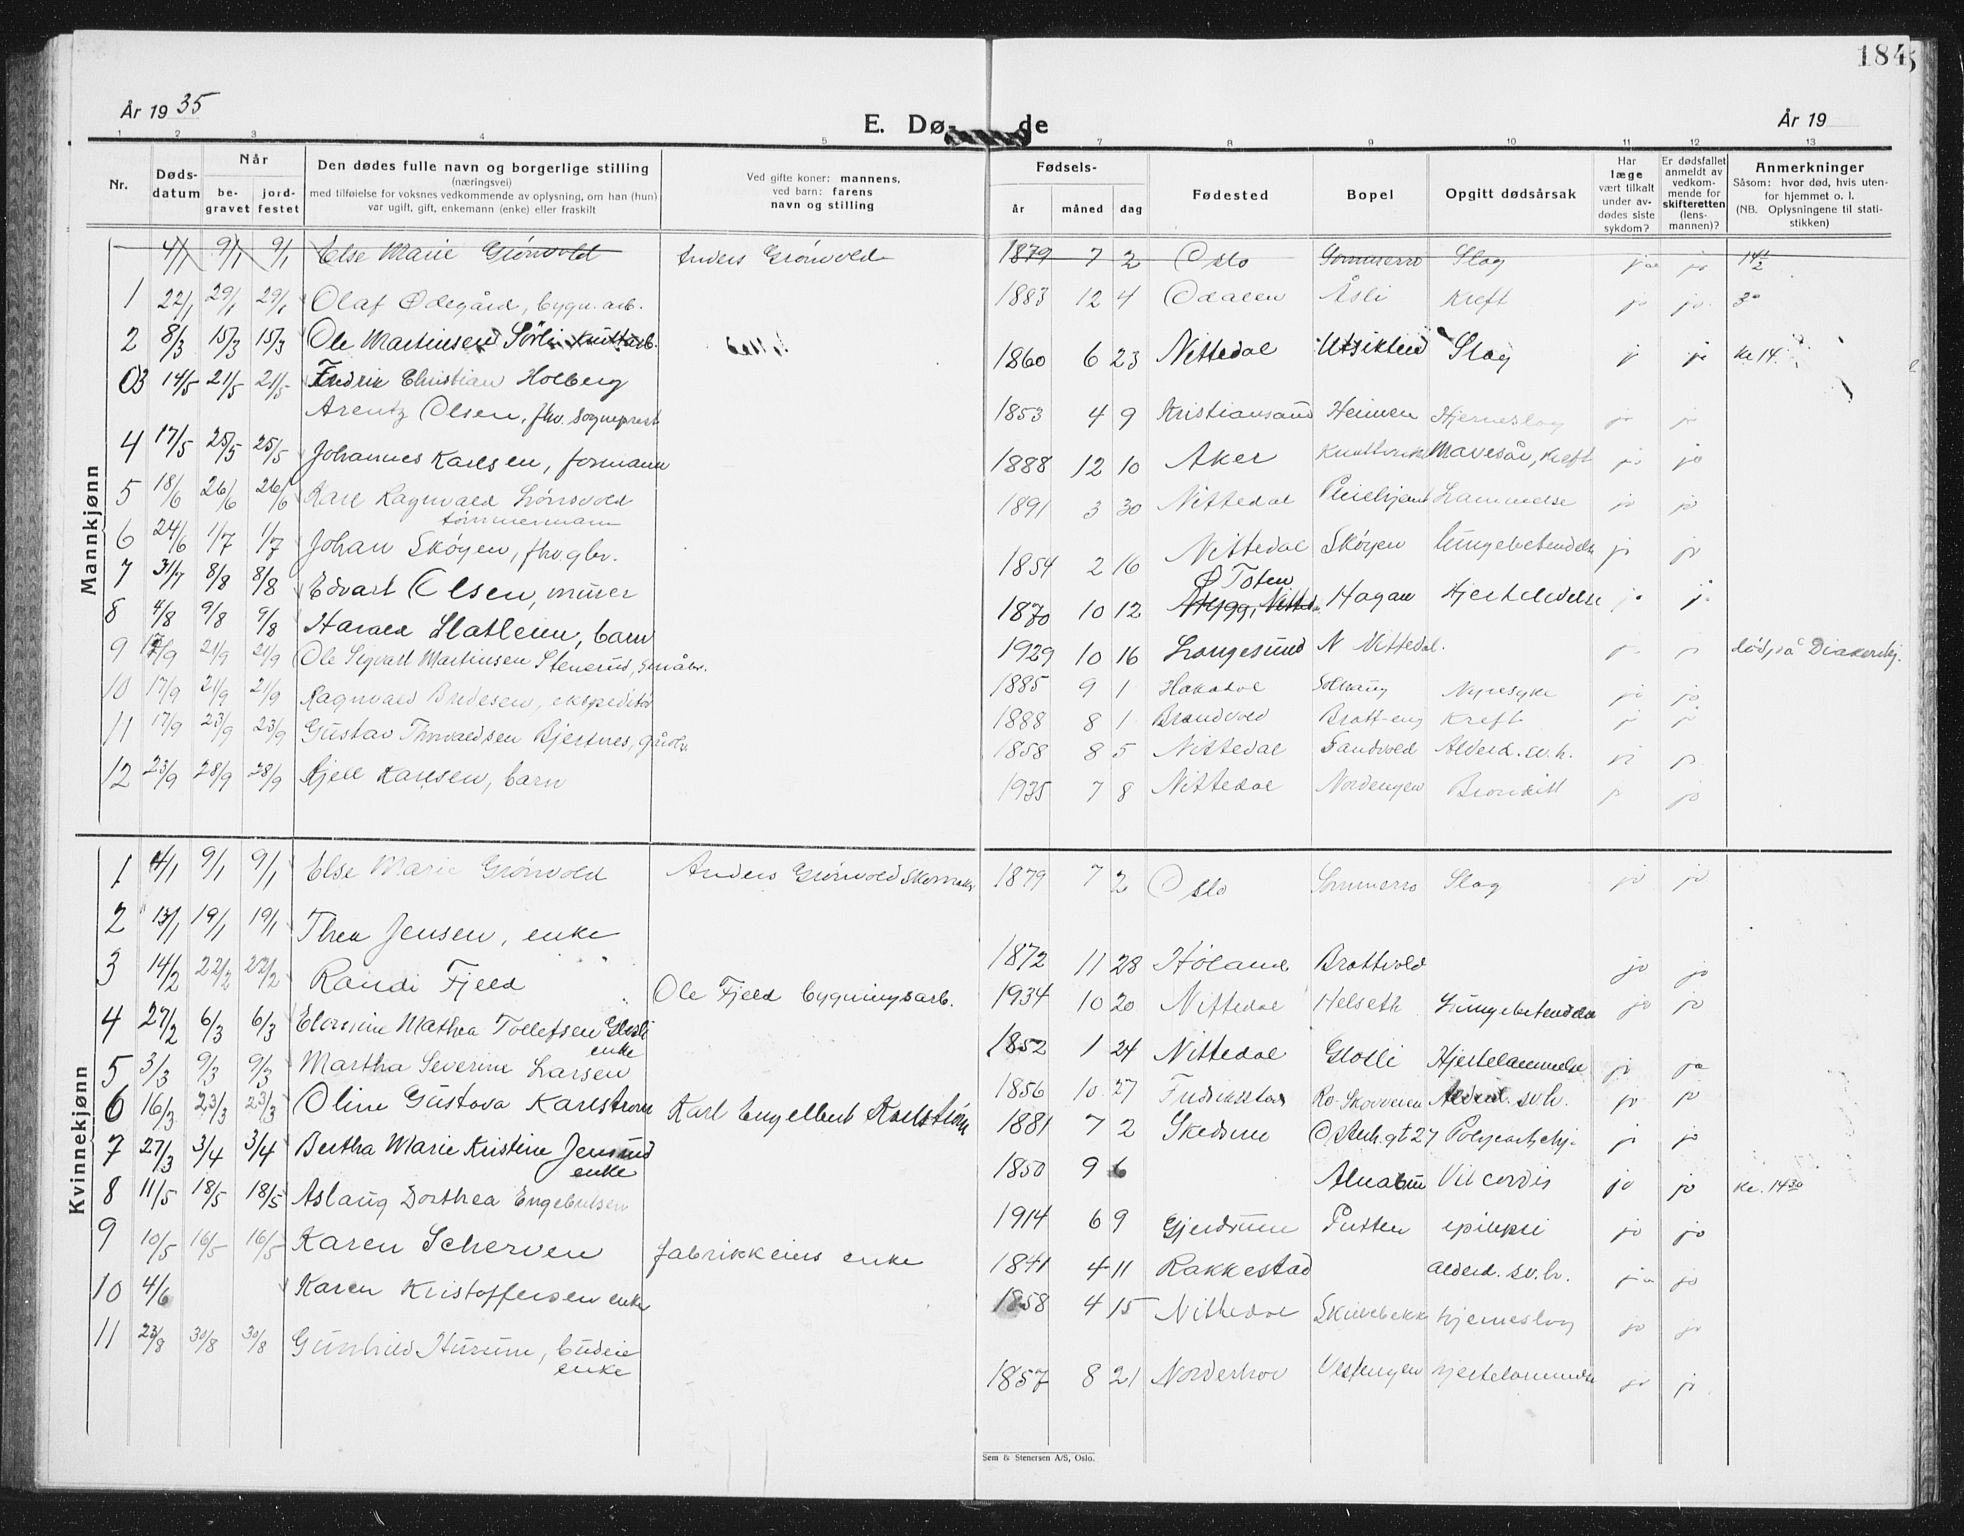 184
År 1935
E. Dø de
År 19
1 2 3 4 5 7 8 9 10 11 12 13
Nr.
Døds-datum
Når
be-gravet
jord-festet
Den dødes fulle navn og borgerlige stilling
(næringsvei)
med tilføielse for voksnes vedkommende av oplysning, om han (hun)
var ugift, gift, enkemann (enke) eller fraskilt
Ved gifte koner: mannens,
ved barn: farens
navn og stilling
Fødsels-
år måned dag
Fødested
Bopel
Opgitt dødsårsak
Har læge vært tilkalt under av-dødes siste sykdom?
Er dødsfallet anmeldt av vedkom-mende for skifteretten (lens-mannen)?
Anmerkninger
Såsom: hvor død, hvis uten-
for hjemmet o. l.
(NB. Oplysningene til stati-
stikken)
Mannkjønn
4/1 9/1 9/1 Else Marie Grönvold Anders Grönvold 1879 7 2 Oslo Sommerro Slag ja jo
1 22/1 29/1 29/1 Olaf Ødegård, bygn. arb. 1883 12 4 Odalen Åsli Kreft jo jo 3°
2 8/3 15/3 15/3 Ole Martinsen Sørli 1860 6 23 Nittedal Utsikten Slag jo Kl 14.
3 14/5 21/5 21/5 Fredrik Christian Holberg
Arentz Olsen, fhv. sogneprest 1853 4 9 Kristiansand Heimen Hjerneslag jo jo
4 17/5 25/5 25/5 Johannes Karlsen, formann 1888 12 10 Aker Mavesår, Kreft jo jo
5 18/6 26/6 26/6 Karl Ragnvald Lönsvold
tömmermann 1891 3 30 Nittedal Pleiehjem Lammelse jo jo
6 24/6 1/7 1/7 Johan Skögen, fhv. gbr. 1854 2 16 Nittedal Skögen Lungebetendelse jo jo
7 31/7 8/8 8/8 Edvart Olsen, murer 1870 10 12 Ø Toten Hagan Hjertelidelse jo jo
8 4/8 9/8 9/8 Harald Slatleim, barn 1929 10 16 Langesund N Nittedal. jo jo død på Diakonhj.
9 17/9 21/9 21/9 Ole Sigvart Martinsen Stenerud, småbr. 1885 9 1 Hakadal Solhaug Nyresyke jo jo
10 17/9 21/9 21/9 Ragnvald Bredesen, ekspeditör 1888 8 1 Brandvold Bratteng Kreft jo jo
11 17/9 23/9 23/9 Gustav Thorvaldsen Bjertnes, gårdbr. 1858 8 5 Nittedal Sandvold Alderd. sv. h. jo jo
12 23/9 28/9 28/9 Kjell Karlsen, barn 1935 7 8 Nittedal Nordengen Bronkitt jo jo
Kvinnekjønn
1 4/1 9/1 9/1 Else Marie Grönvold Anders Grönvold Skomaker 1879 7 2 Oslo Sommerro Slag jo jo
2 13/1 19/1 19/1 Thea Jensen, enke 1872 11 28 Høland Brattvold jo jo
3 14/2 22/2 22/2 Randi Fjeld Ole Fjeld bygningsarb. 1934 10 20 Nittedal Helseth Lungebetendelse jo jo
4 27/2 6/3 6/3 Elomine Mathea Tollefsen Glosli
enke 1852 1 24 Nittedal Glosli Hjertelammelse jo ja
5 3/3 9/3 9/3 Martha Severine Larsen 1856 10 27 Fredrikstad Ro-Skoveien Alderd. sv. h. jo jo
6 16/3 23/3 23/3 Oline Gustava Karlström Karl Engelbert Karlström 1881 7 2 Skedsmo jo jo
7 27/3 3/4 3/4 Bertha Marie Kristine
enke 1850 9 6 Alnabru Vit cordis jo jo Kl. 14 30
8 11/5 18/5 18/5 Aslaug Dorthea Engebretsen 1914 6 9 Gjerdrum Putten epilepsi jo jo
9 10/5 16/5 16/5 Karen Scherven fabrikkeiers enke 1841 4 11 Rakkestad alderd. sv. h. ja jo
10 4/6 Karen Kristoffersen enke 1858 4 15 Nittedal Skillebekk hjerneslag jo jo
11 23/8 30/8 30/8 Gunhild Hurum, budeie
enke 1857 8 21 Norderhov Vestengen hjertelammelse jo jo
Sem & Stenersen A/S, Oslo.